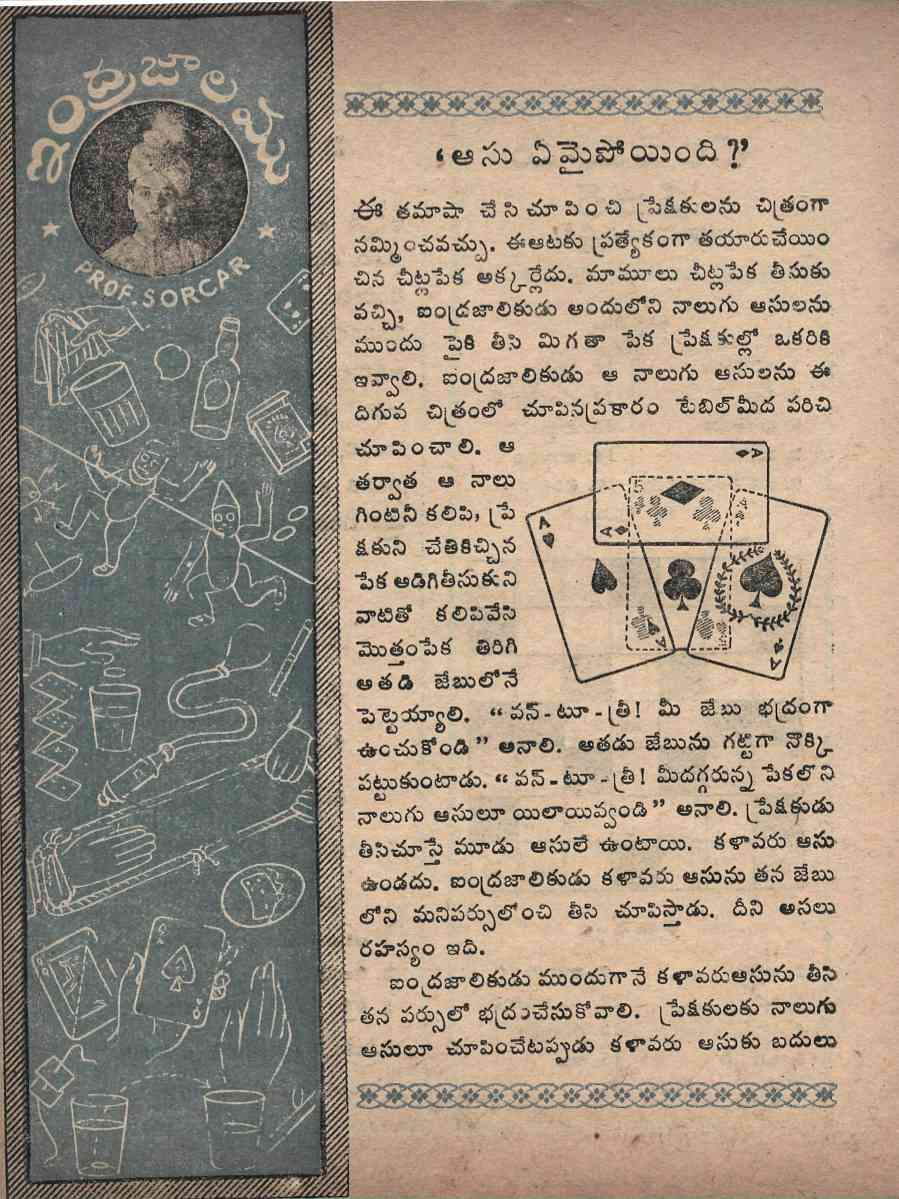 ఇంద్రజాలము
PROF. SORCAR
'ఆసు ఏమైపోయింది?'
ఈ తమాషా చేసిచూపించి ప్రేక్షకులను చిత్రంగా
నమ్మించవచ్చు. ఈఆటకు ప్రత్యేకంగా తయారుచేయిం
చిన చీట్లపేక అక్కర్లేదు. మామూలు చీట్లపేక తీసుకు
వచ్చి, ఐంద్రజాలికుడు అందులోని నాలుగు ఆసులను
ముందు పైకి తీసి మిగతా పేక ప్రేక్షకుల్లో ఒకరికి
ఇవ్వాలి. ఐంద్రజాలికుడు ఆ నాలుగు ఆసులను ఈ
దిగువ చిత్రంలో చూపినప్రకారం టేబిల్‌మీద పరిచి
చూపించాలి. ఆ
తర్వాత ఆ నాలు
గింటినీ కలిపి, ప్రే
క్షకుని చేతికిచ్చిన
పేక అడిగితీసుకుని
వాటితో కలిపివేసి
మొత్తంపేక తిరిగి
అతడి జేబులోనే
పెట్టెయ్యాలి. “వన్-టూ-త్రీ! మీ జేబు భద్రంగా
ఉంచుకోండి” అనాలి. అతడు జేబును గట్టిగా నొక్కి
పట్టుకుంటాడు. “వన్-టూ-త్రీ! మీదగ్గరున్న పేకలోని
నాలుగు ఆసులూ యిలాయివ్వండి” అనాలి. ప్రేక్షకుడు
తీసిచూస్తే మూడు ఆసులే ఉంటాయి. కళావరు ఆసు
ఉండదు. ఐంద్రజాలికుడు కళావరు ఆసును తన జేబు
లోని మనిపర్సులోంచి తీసి చూపిస్తాడు. దీని అసలు
రహస్యం ఇది.
ఐంద్రజాలికుడు ముందుగానే కళావరుఆసును తీసి
తన పర్సులో భద్రంచేసుకోవాలి. ప్రేక్షకులకు నాలుగు
ఆసులూ చూపించేటప్పుడు కళావరు ఆసుకు బదులు
A
A
A
A
5
A
A